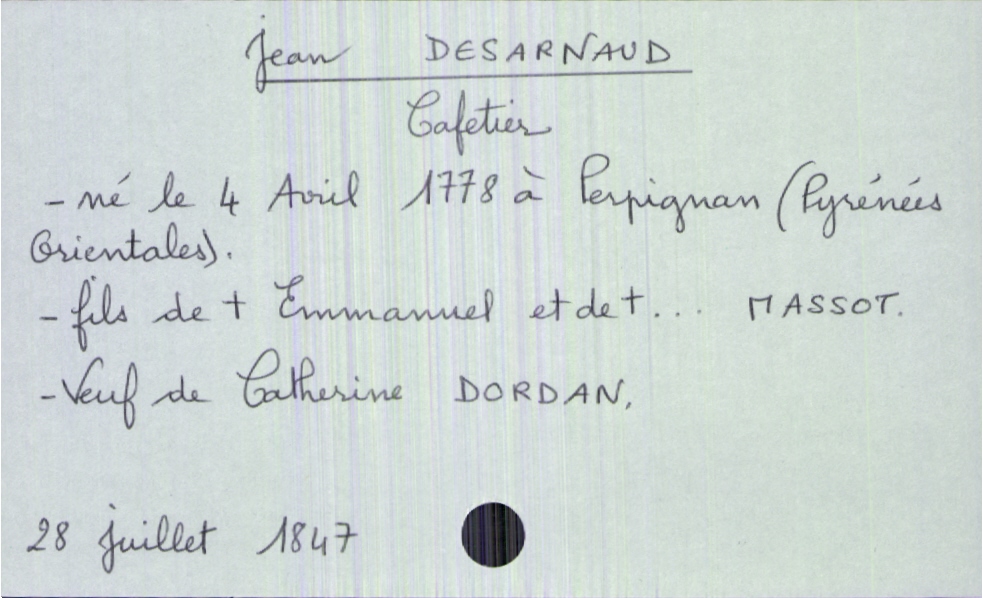 Jean DESARNAUD
Cafetier
- né le 4 Avril 1778 à Perpignan (Pyrénées
Orientales).
- fils de + Emmanuel et de +... MASSOT.
- Veuf de Catherine DORDAN.
28 juillet 1847